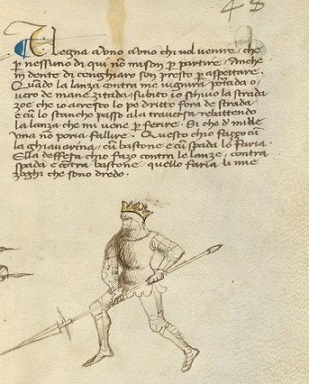 48
Vegna a uno a uno chi vol venire / che
p nessuno di qui nō mison p partire / Anche
in dente di conghiaro son presto p aspettare.
Quādo la lanza contra me vignirà portada o
vero de mane zitada / subito io schivo la strada
zoe che io acresco lo pe dritto fora de strada
e cū lo stancho passo ala traversa rebattendo
la lanza che mi vene p ferire. Si che d' mille
una nō poria fallire. Questo chio fazo cū
la ghiavarina / cū bastone e cū spada lo faria.
E la deffesa chio fazo contra le lanze / contra
spada e cōtra bastone quello faria li mie
zoghi che sono dredo.